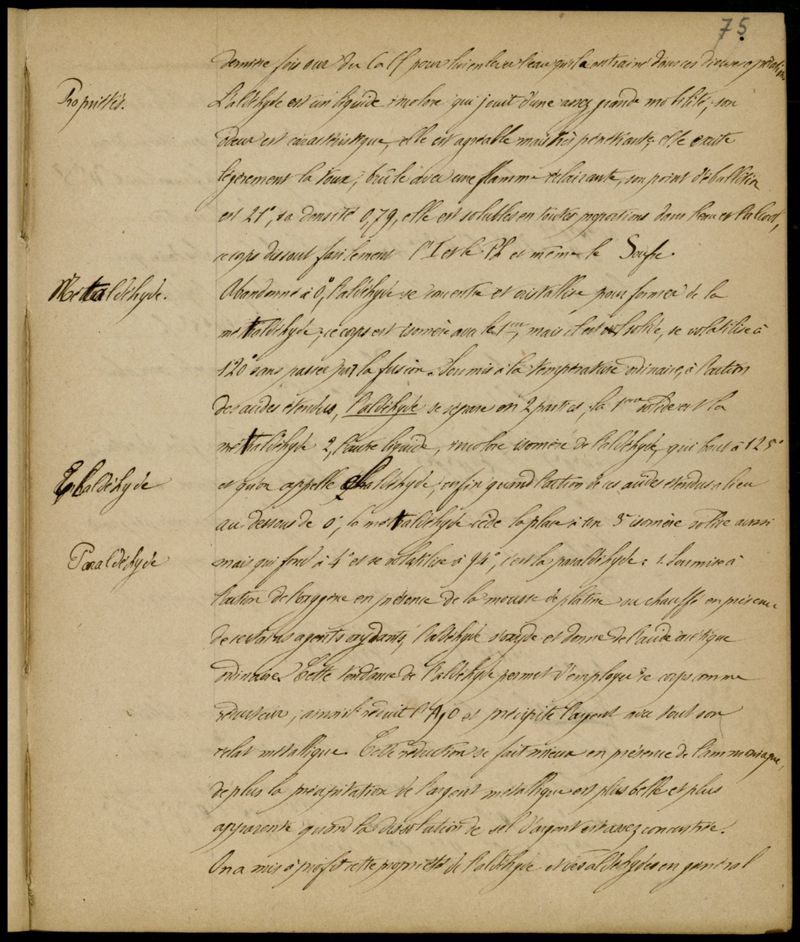 75
dernière fois sur du CaCl pour lui enlever l'eau qu'il a entrainé dans ces diverses opérations
Propriétés.
L'aldéhyde est un liquide incolore qui jouit d'une assez grande mobilité, son
odeur est caractéristique, elle est agréable mais très pénétrante, elle excite
légèrement la toux; brûle avec une flamme éclairante, son point d'ébullition
est 21°, sa densité 0,79, elle est solubles en toutes proportions dans l'eau et l'alcool,
ce corps dissout facilement l'I et le Ph et même le Soufre.
Métaldéhyde.
Abandonné à 0°, l'aldéhyde se concrète et cristallise pour former de la
métaldéhyde, ce corps est isomère avec le 1er, mais il est solide, se volatilise à
120° sans passer par la fusion. Soumis à la température ordinaire, à l'action
des acides étendus, l'aldéhyde se sépare en 2 parties, la 1ère solide est la
métaldéhyde 2, l'autre liquide, incolore isomère de l'aldéhyde, qui bout à 125°
Elaldéhyde
et qu'on appelle Elaldéhyde; enfin quand l'action de ces acides étendus a lieu
au dessous de 0°, la métaldéhyde cède la place à un 3e isomère solide aussi
Paraldéhyde
mais qui fond à 4° et se volatilise à 94°, c'est la paraldéhyde. Soumise à
l'action de l'oxygène en présence de la mousse de platine ou chauffé en présence
de certains agents oxydants, l'aldéhyde s'oxyde et donne de l'acide acétique
ordinaire. Cette tendance de l'aldéhyde permet d'employer ce corps comme
réducteur; ainsi il réduit l'AgO et précipite l'argent avec tout son
eclat métallique. Cette réduction se fait mieux en présence de l'ammoniaque,
de plus la précipitation de l'argent métallique est plus belle et plus
apparente quand la dissolution de sel d'argent est assez concentrée.
On a mis à profit cette propriété de l'aldéhyde et des aldéhydes en général